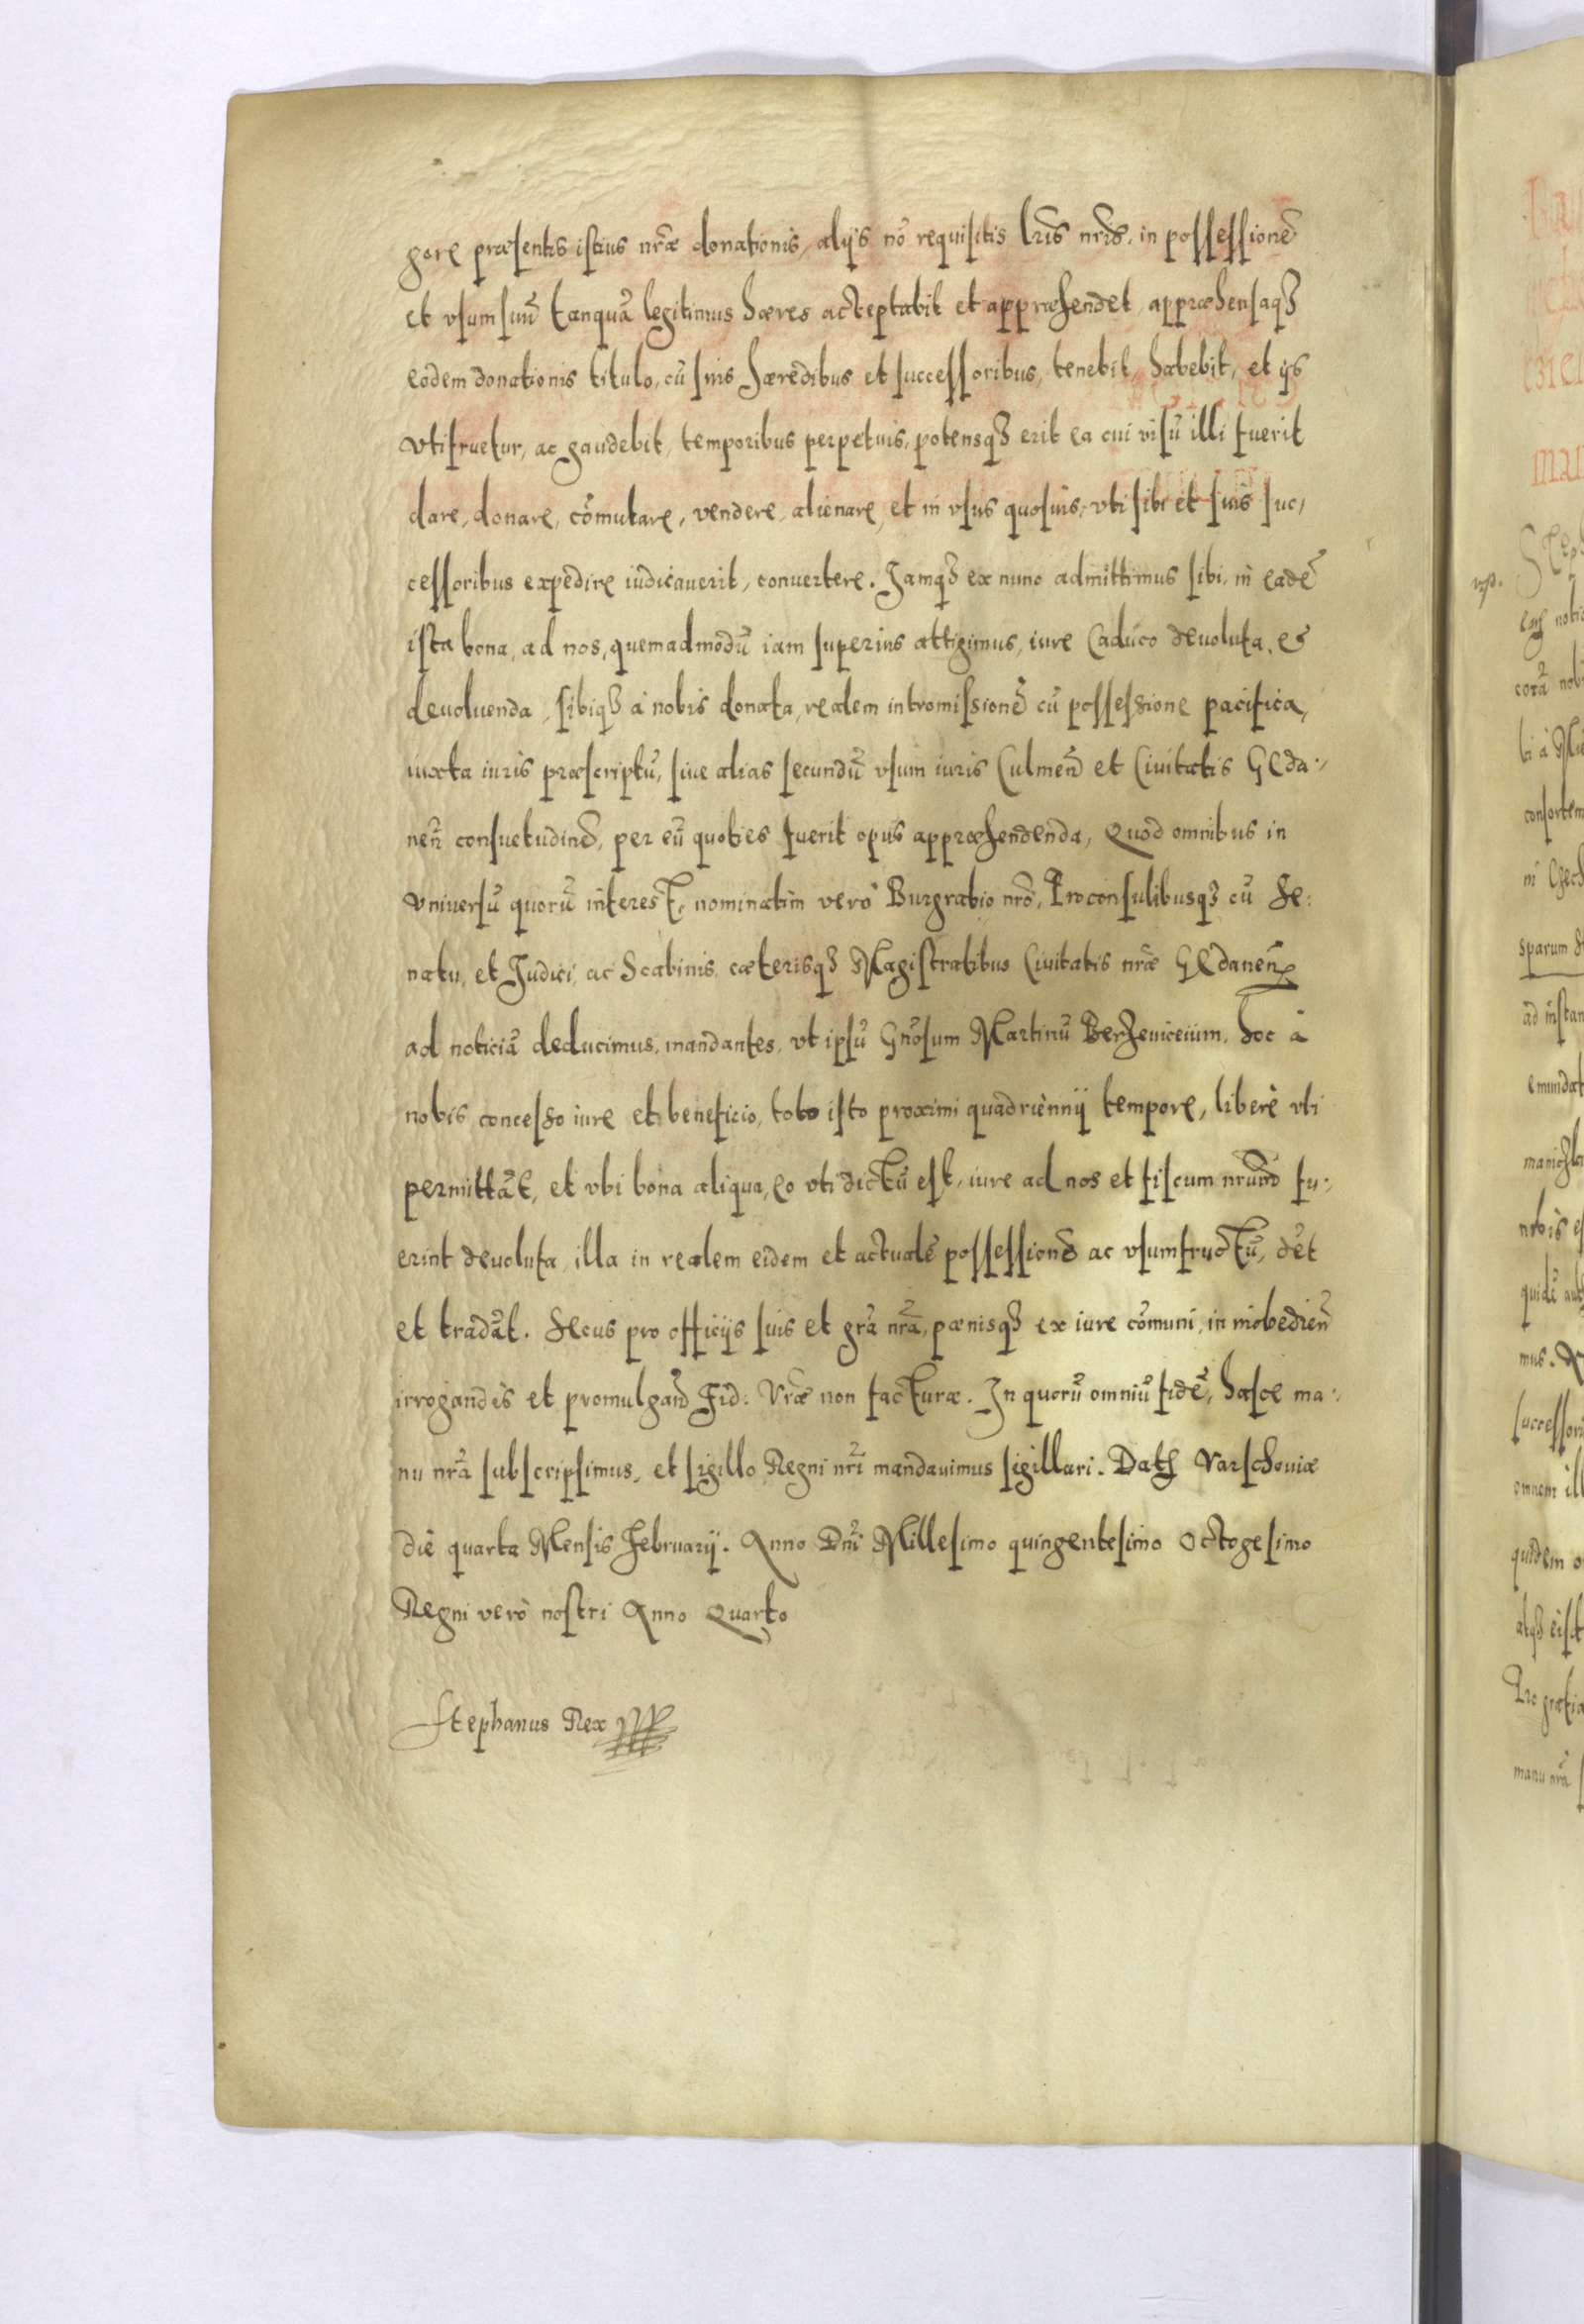 gore præsentis istius nr̃æ donationis, alijs nõ requisitis lr̃is nr̃is, in possessionẽ
et vsum suũ tanquã legitimus hæres acceptabit et appræhendet, appræhensaqꝫ
eodem donationis titulo, cũ suis hæredibus et successoribus, tenebit, habebit, et ijs
vtifruetur, ac gaudebit, temporibus perpetuis, potensqꝫ erit ea cui visũ illi fuerit
dare, donare, cõmutare, vendere, alienare, et in vsus quosuis, vti sibi et suis suc/
cessoribus expedire iudicauerit, conuertere. Jamqꝫ ex nunc admittimus sibi, in eadẽ
ista bona, ad nos, quemadmodũ iam superius attigimus, iure Caduco deuoluta, et
deuoluenda, sibiqꝫ à nobis donata, realem intromissionẽ cũ possessione pacifica,
iuxta iuris præscriptũ, siue alias secundũ vsum iuris Culmeñ et Ciuitatis Geda:
neñ consuetudinẽ, per eũ quoties fuerit opus appræhendenda, Quod omnibus in
vniuersũ quorũ interest, nominatim verò Burgrabio nr̃o, Proconsulibusqꝫ cũ Se:
natu, et Judici, ac Scabinis, cæterisqꝫ Magistratibus Ciuitatis nr̃æ Gedaneñ
ad noticiã deducimus, mandantes, vt ipsũ Gñosum Martinũ Berzeuiceium, hoc à
nobis concesso iure et beneficio, toto isto proximi quadriennij tempore, liberè vti
permittãt, et vbi bona aliqua, eo vti dictũ est, iure ad nos et fiscum nr̃um fu:
erint deuoluta, illa in realem eidem et actualẽ possessionẽ ac vsumfructũ, dẽt
et tradãt. Secus pro officijs suis et gr̃a nr̃a, pœnisqꝫ ex iure cõmuni, in inobedieñ
irrogandis et promulgañd Fid: Vr̃æ non facturæ. In quorũ omniũ fidẽ, hasce ma:
nu nr̃a subscripsimus, et sigillo Regni nr̃i mandauimus sigillari. Datꝫ Varschouiæ
die quarta Mensis Februarij. Anno Dñi Millesimo quingentesimo Octogesimo
Regni verò nostri Anno Quarto
Stephanus Rex